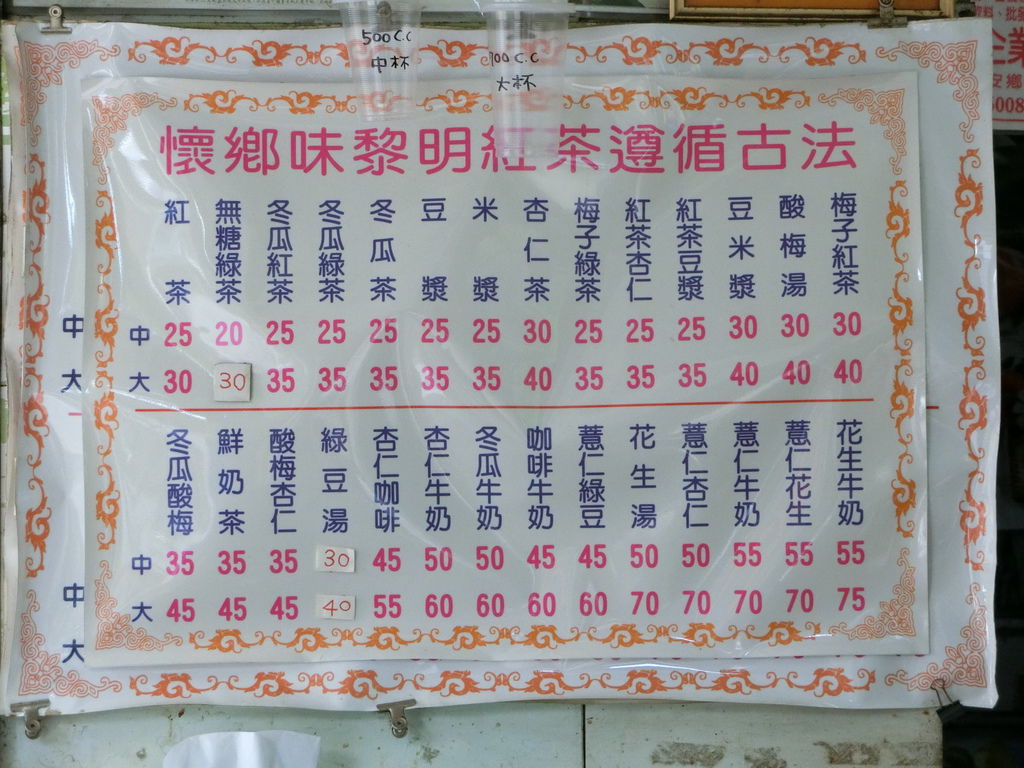 500 C.C
中杯
700 C.C
大杯
懷鄉味黎明紅茶遵循古法
紅茶 無糖綠茶 冬瓜紅茶 冬瓜綠茶 冬瓜茶 豆漿 米漿 杏仁茶 梅子綠茶 紅茶杏仁 紅茶豆漿 豆米漿 酸梅湯 梅子紅茶
中 25 20 25 25 25 25 25 30 25 25 25 30 30 30
大 30 30 35 35 35 35 35 40 35 35 35 40 40 40
冬瓜酸梅 鮮奶茶 酸梅杏仁 綠豆湯 杏仁咖啡 杏仁牛奶 冬瓜牛奶 咖啡牛奶 薏仁綠豆 花生湯 薏仁杏仁 薏仁牛奶 薏仁花生 花生牛奶
中 35 35 35 30 45 50 50 45 45 50 50 55 55 55
大 45 45 45 40 55 60 60 60 60 70 70 70 70 75
中
大
中
大
企業
安鄉